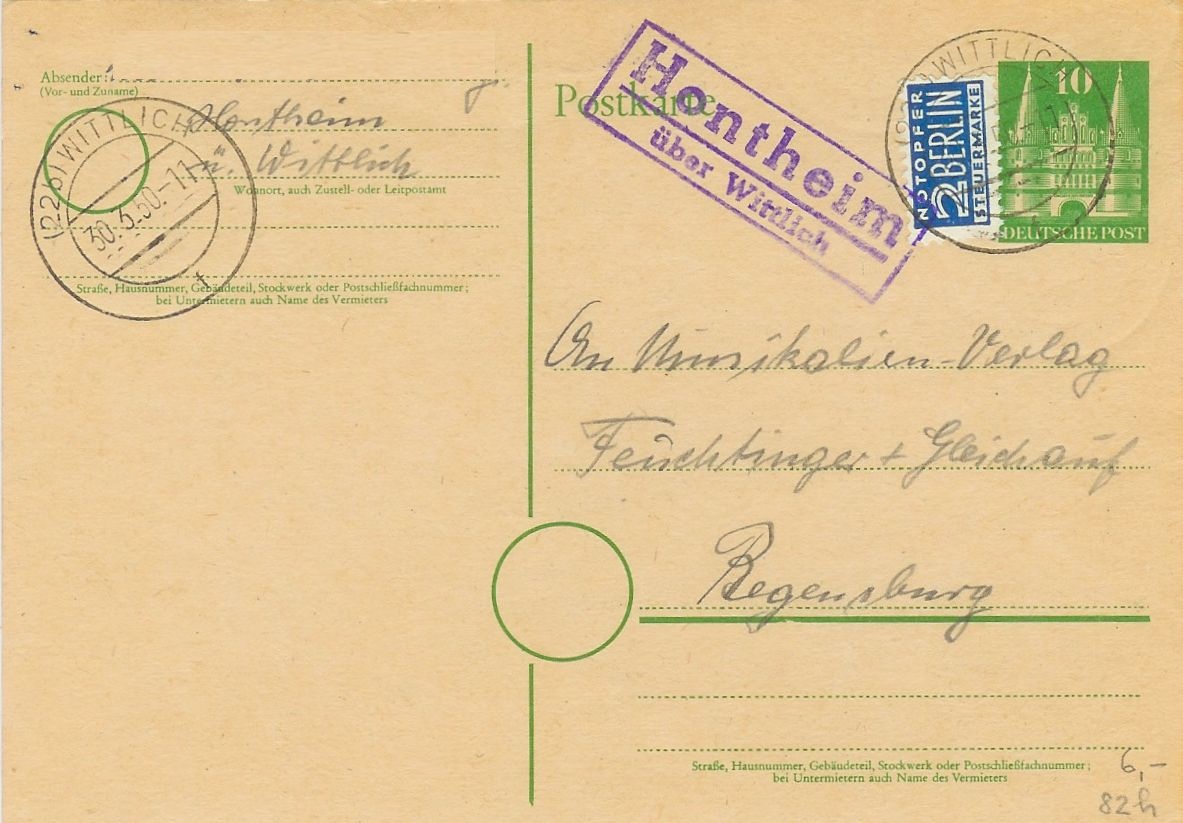 Absender:
(Vor- und Zuname)
Hontheim
ü. Wittlich
Wohnort, auch Zustell- oder Leitpostamt
(22b) WITTLICH
30.5.50.-11
t
Straße, Hausnummer, Gebäudeteil, Stockwerk oder Postschließfachnummer;
bei Untermietern auch Name des Vermieters
Postkarte
Hontheim
über Wittlich
NOTOPFER
2 BERLIN
STEUERMARKE
WITTLICH
10
DEUTSCHE POST
An Musikalien-Verlag
Feuchtinger + Gleichauf
Regensburg
Straße, Hausnummer, Gebäudeteil, Stockwerk oder Postschließfachnummer;
bei Untermietern auch Name des Vermieters
6,-
82h